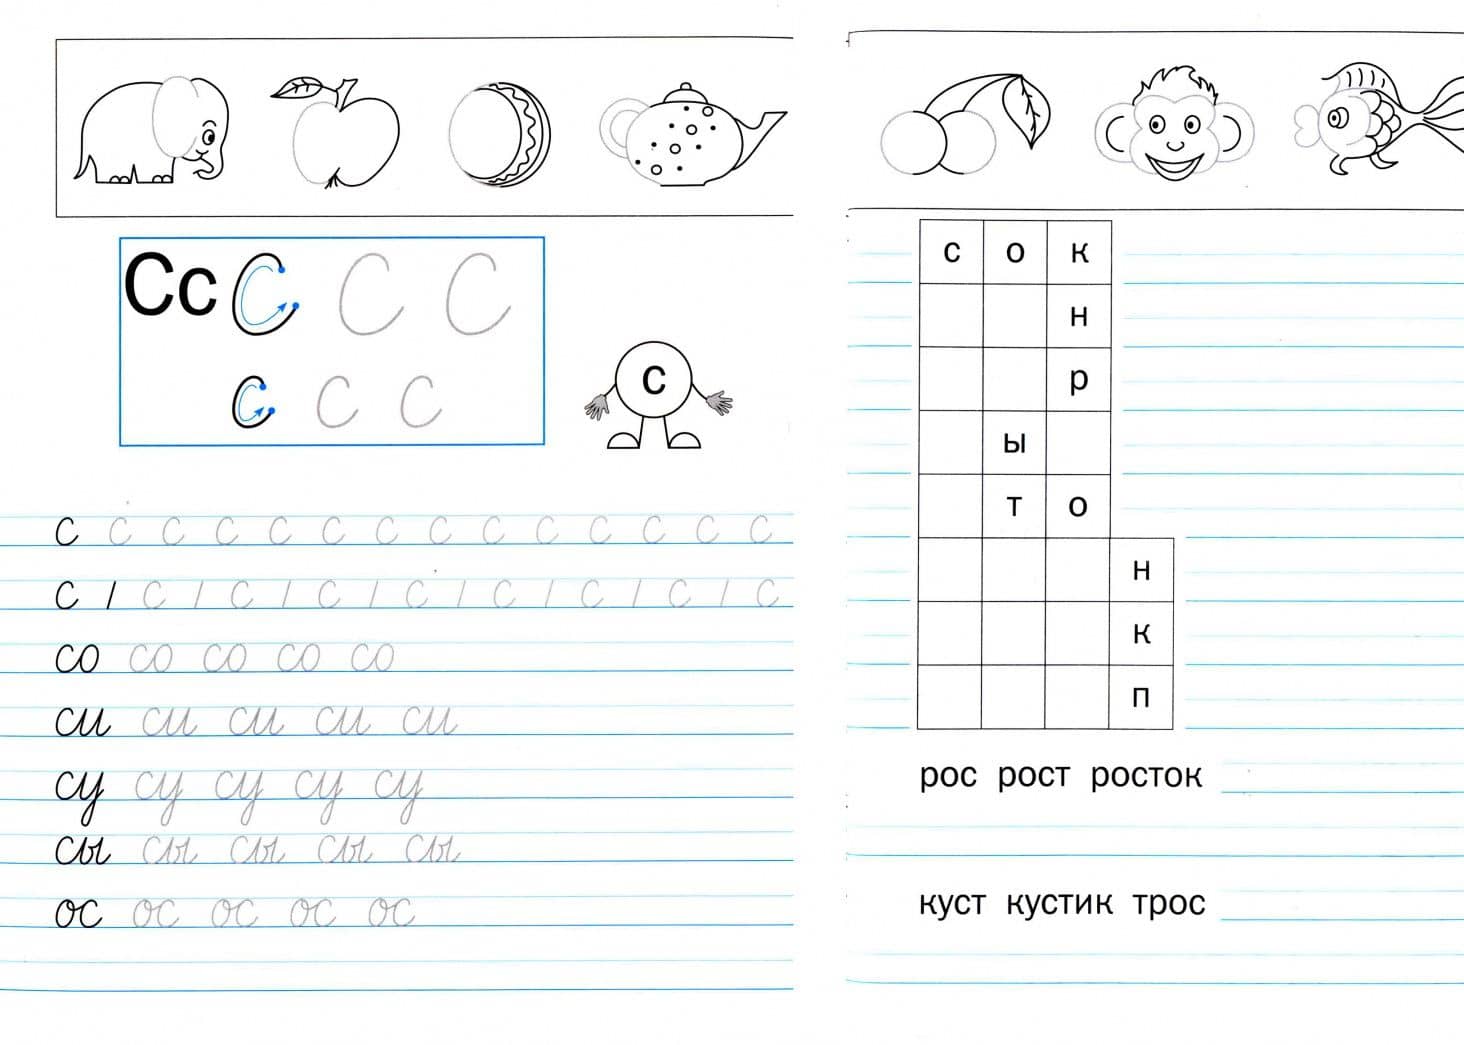 Сс С С С
с с с
с
с с с с с с с с с с с с с с
с / с / с / с / с / с / с / с / с
со со со со со
си си си си си
су су су су су
сы сы сы сы сы
ос ос ос ос ос
с о к
н
р
ы
т о
н
к
п
рос рост росток
куст кустик трос